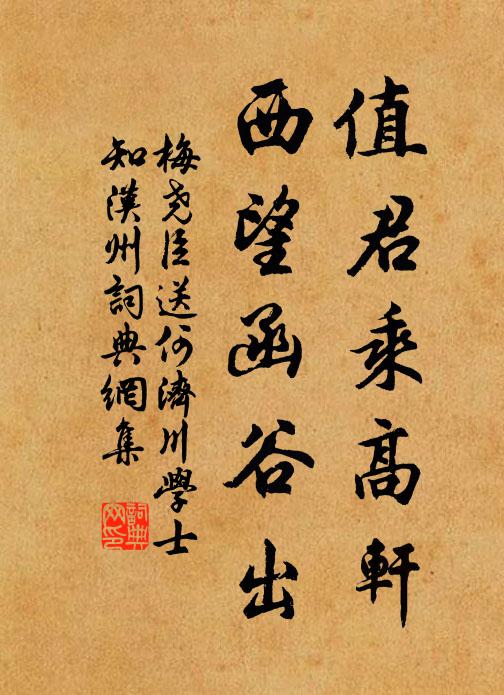 值君乘高軒
西望函谷出
梅堯臣送何濟川學士
知漢州詞典網集
詞典
网印